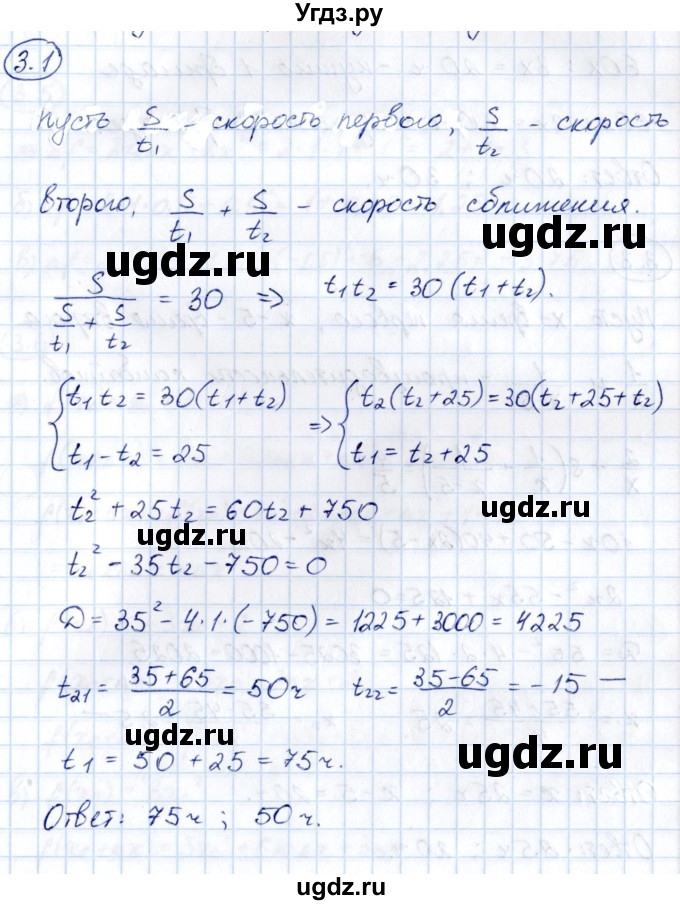 Угдз.ру
3.1
Пусть S/t₁ - скорость первого, S/t₂ - скорость
второго, S/t₁ + S/t₂ - скорость сближения.
ugdz.ru ugdz.ru
S/(S/t₁ + S/t₂) = 30 => t₁t₂ = 30(t₁+t₂).
{t₁t₂ = 30(t₁+t₂) => {t₂(t₂+25)=30(t₂+25+t₂)
t₁-t₂=25 t₁=t₂+25
t₂²+25t₂=60t₂+750
ugdz.ru
t₂²-35t₂-750=0
D=35²-4·1·(-750)=1225+3000=4225
t₂₁=(35+65)/2=50ч t₂₂=(35-65)/2=-15 —
ugdz.ru
t₁=50+25=75ч.
ugdz.ru
Ответ: 75ч; 50ч.
ugdz.ru